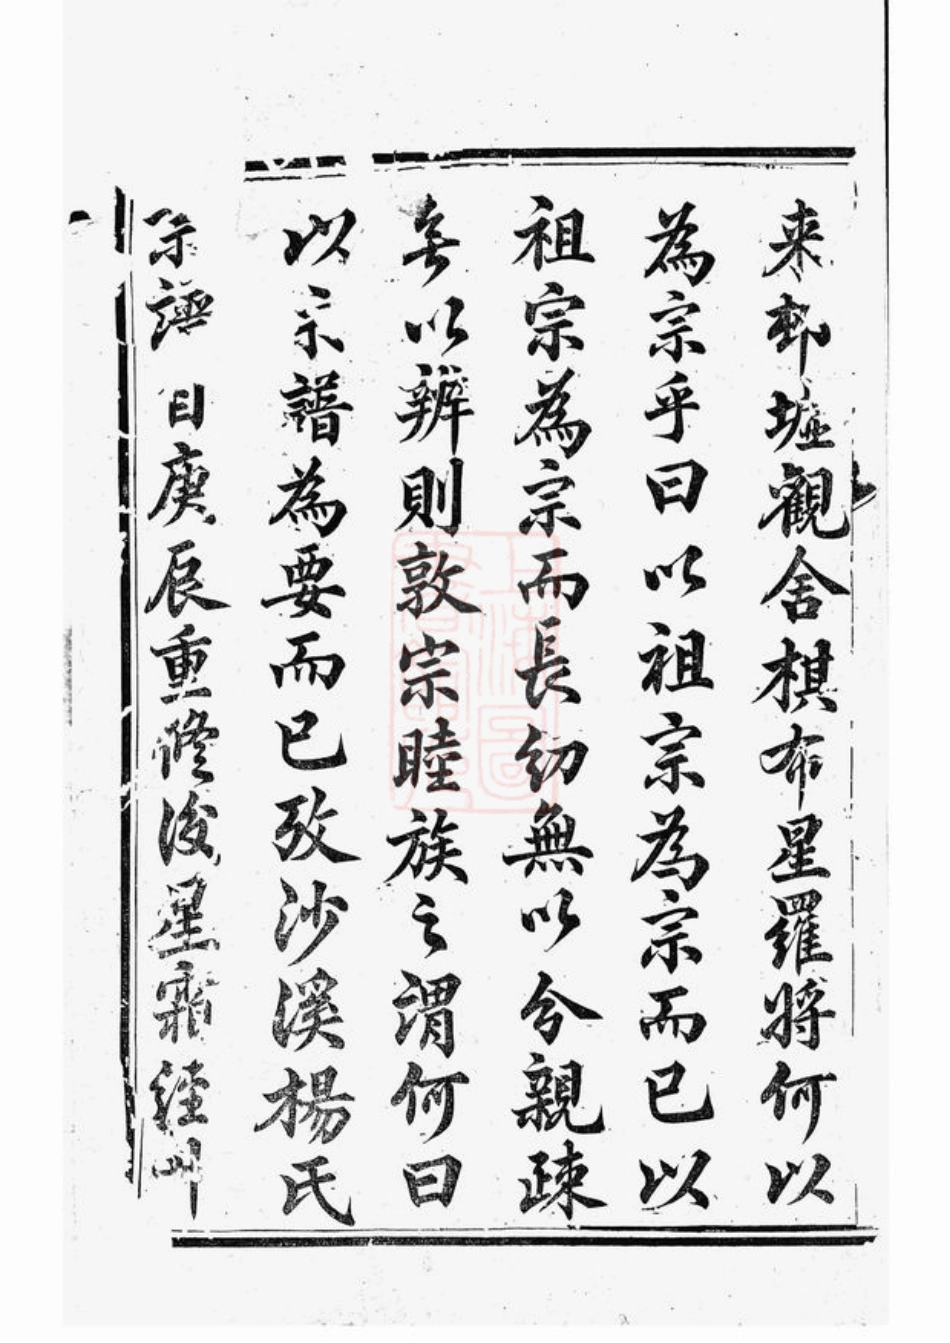 来邨墟觀舍棋布星羅将何以
為宗乎曰以祖宗為宗而已以
祖宗為宗而長幼無以分親疎
無以辨則敦宗睦族之謂何曰
以宗譜為要而已攷沙溪楊氏
宗譜自庚辰重修後星霜經卅